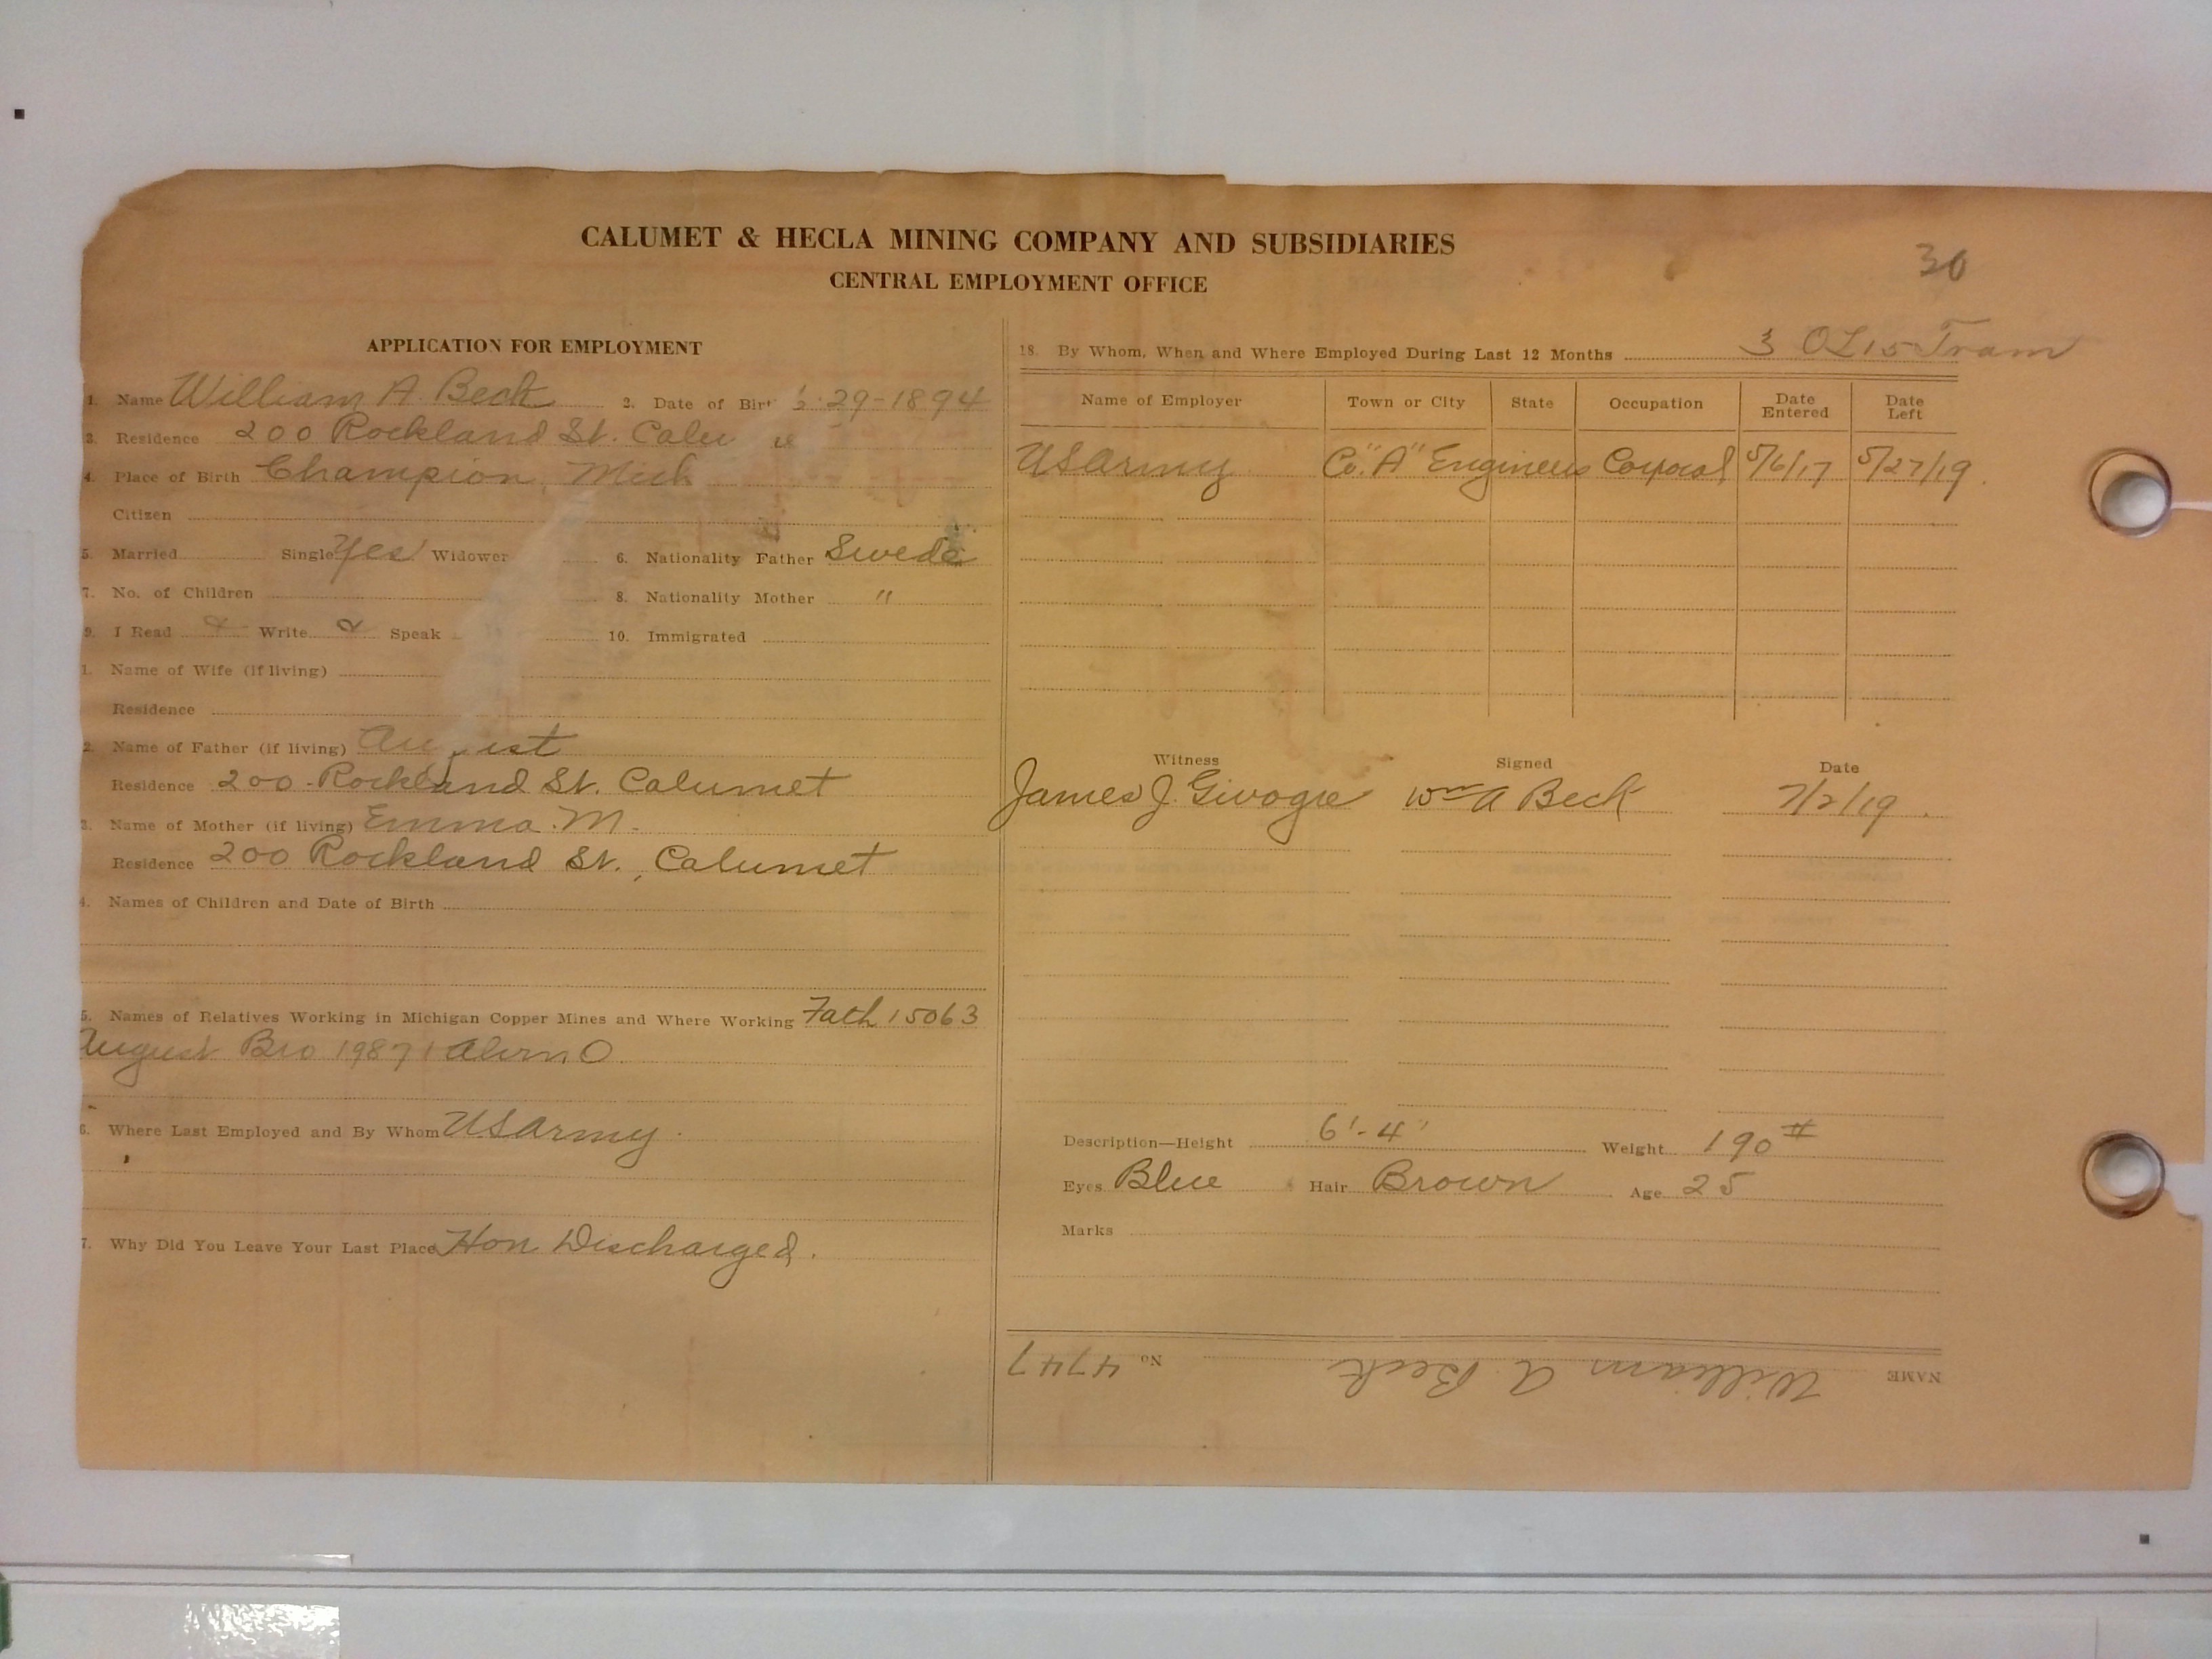 CALUMET & HECLA MINING COMPANY AND SUBSIDIARIES
CENTRAL EMPLOYMENT OFFICE
30
APPLICATION FOR EMPLOYMENT
1. Name William A Beck 2. Date of Birt 29-1894
3. Residence 200 Rockland St. Calu
4. Place of Birth Champion, Mich
Citizen
5. Married Single Yes Widower 6. Nationality Father Swede
7. No. of Children 8. Nationality Mother "
9. I Read Write Speak 10. Immigrated
1. Name of Wife (if living)
Residence
2. Name of Father (if living) Au ust
Residence 200 Rockland St. Calumet
3. Name of Mother (if living) Emma M.
Residence 200 Rockland St., Calumet
4. Names of Children and Date of Birth
5. Names of Relatives Working in Michigan Copper Mines and Where Working Fath 15063
August Bro 19871 O
6. Where Last Employed and By Whom US Army
7. Why Did You Leave Your Last Place Hon Discharged.
18. By Whom, When and Where Employed During Last 12 Months 3 OL 15 Tram
Name of Employer Town or City State Occupation Date Entered Date Left
US Army Co. "A" Engineers Corporal 5/6/17 5/27/19
Witness Signed Date
James J. Wm A Beck 7/2/19
Description—Height 6'-4" Weight 190#
Eyes Blue Hair Brown Age 25
Marks
NAME William A. Beck No 4747